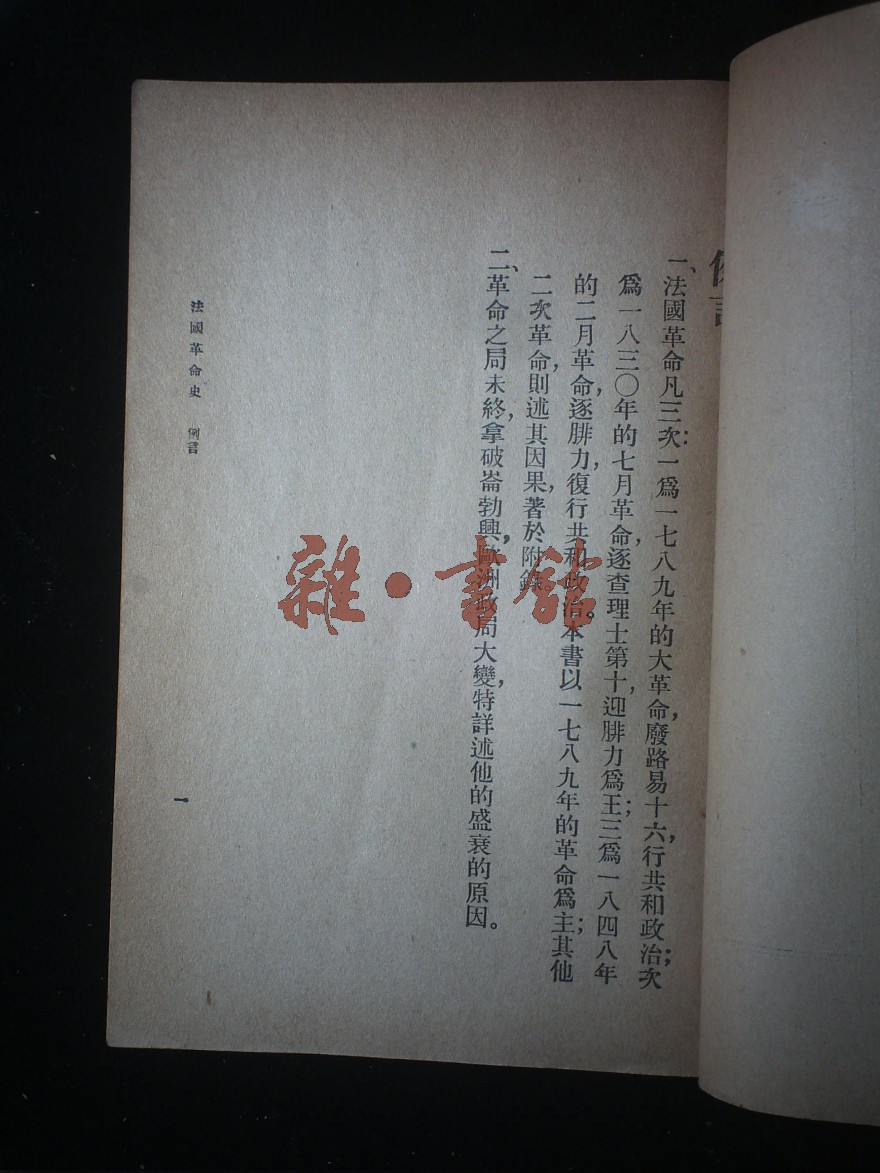 例言
一、法國革命凡三次：一爲一七八九年的大革命，廢路易十六，行共和政治；次
爲一八三〇年的七月革命，逐查理士第十，迎腓力爲王；三爲一八四八年
的二月革命，逐腓力，復行共和政治。本書以一七八九年的革命爲主；其他
二次革命，則述其因果，著於附錄。
二、革命之局未終，拿破崙勃興，歐洲政局大變，特詳述他的盛衰的原因。
法國革命史 例言
一
雜·書館